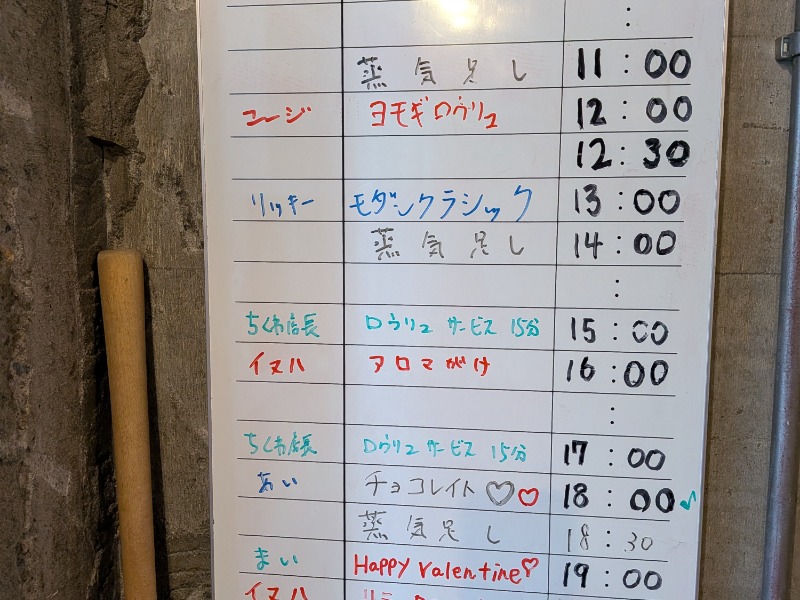 :
蒸気足し 11:00
コージ ヨモギロウリュ 12:00
12:30
リッキー モダンクラシック 13:00
蒸気足し 14:00
:
ちくわ店長 ロウリュサービス 15分 15:00
イヌハ アロマがけ 16:00
:
ちくわ店長 ロウリュサービス 15分 17:00
あい チョコレイト♡♡ 18:00♪
蒸気足し 18:30
まい Happy Valentine♡ 19:00
イヌハ